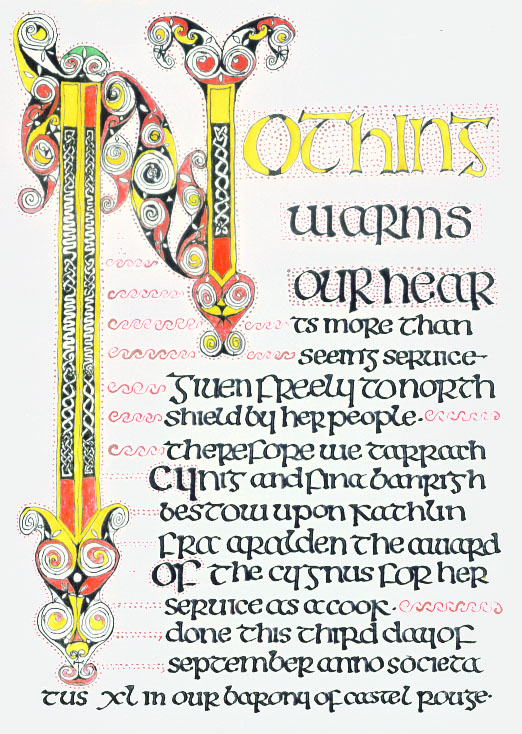 Nothing
warms
our hear
ts more than
seeing service
given freely to north
shield by her people.
therefore we tarrach
cynig and fina banrigh
bestow upon kathlin
fra aralden the award
of the cygnus for her
service as a cook.
done this third day of
september anno societa
tus xl in our barony of castel rouge.